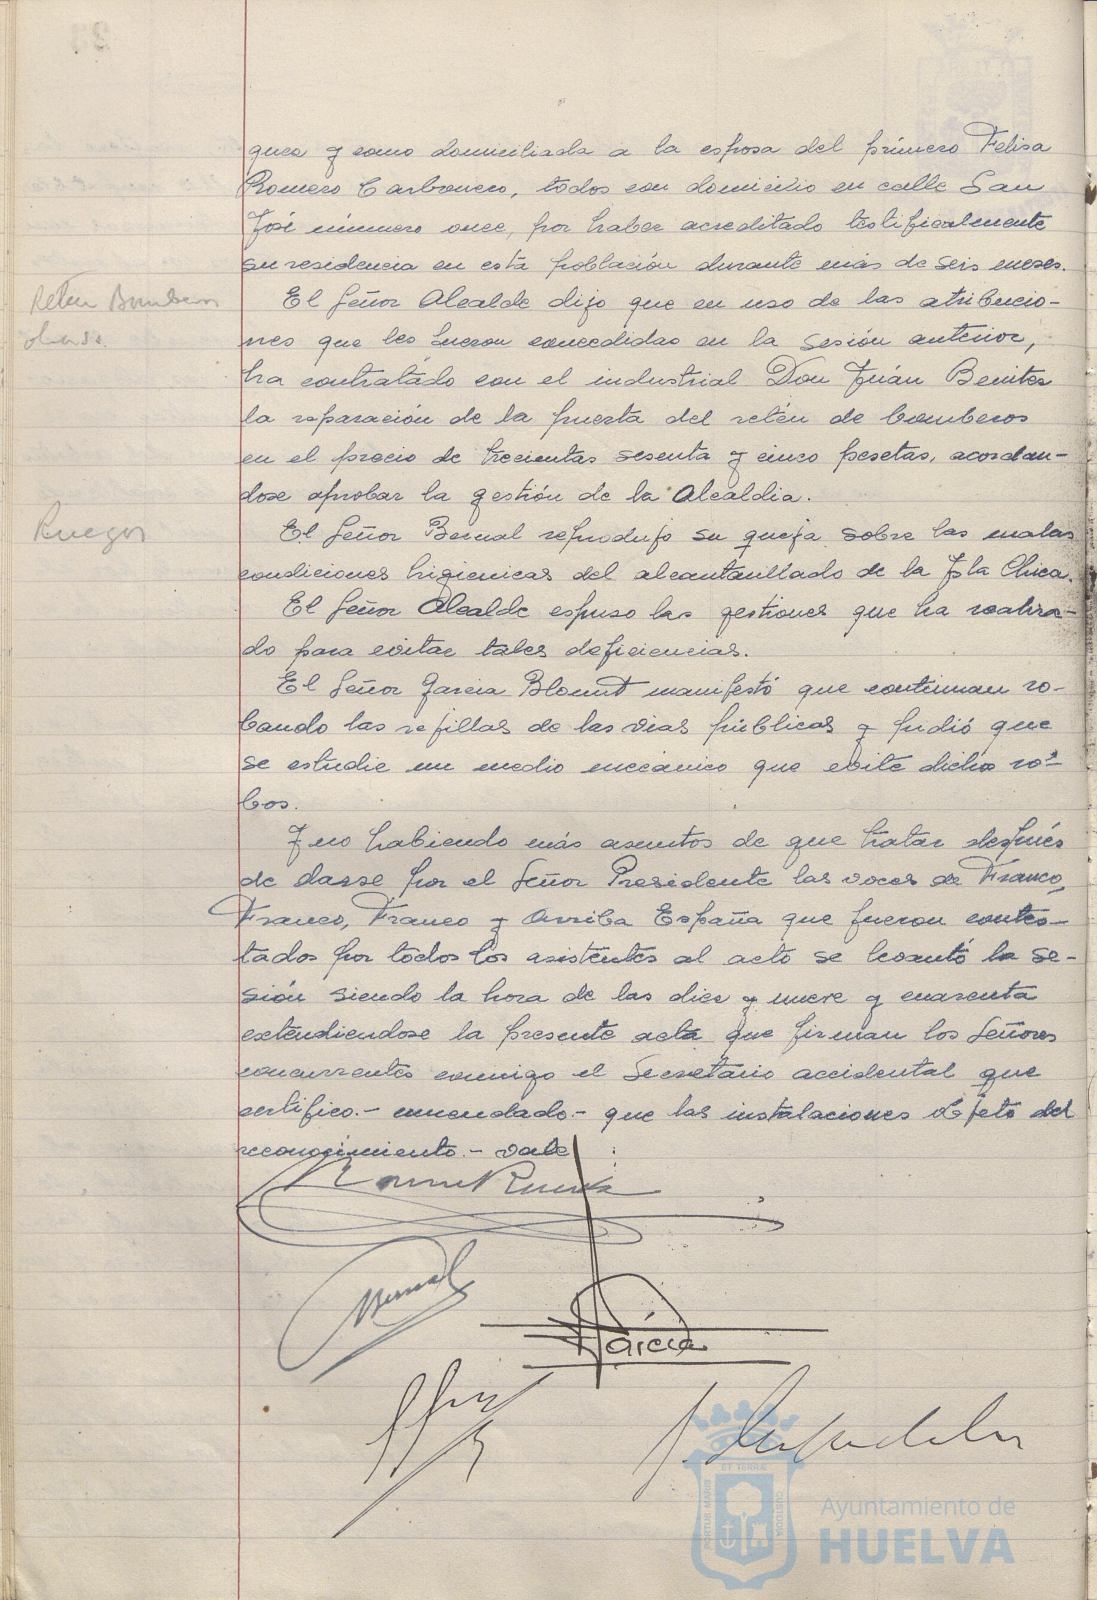 guez y como domiciliada a la esposa del primero Felisa
Romero Carbonero, todos con domicilio en calle San
José número once, por haber acreditado testificalmente
su residencia en esta población durante más de seis meses.
Reten Bomberos
obras.
El Señor Alcalde dijo que en uso de las atribucio-
nes que les fueron concedidas en la sesión anterior,
ha contratado con el industrial Don Juán Benitez
la reparación de la puerta del retén de bomberos
en el precio de trecientas sesenta y cinco pesetas, acordan-
dose aprobar la gestión de la Alcaldia.
Ruegos
El Señor Bernal reprodujo su queja sobre las malas
condiciones higienicas del alcantarillado de la Isla Chica.
El Señor Alcalde espuso las gestiones que ha realiza-
do para evitar tales deficiencias.
El Señor Garcia Blount manifestó que continuan ro-
bando las rejillas de las vias públicas y pidió que
se estudie un medio mecánico que evite dichos ro-
bos.
Y no habiendo más asuntos de que tratar después
de darse por el Señor Presidente las voces de Franco,
Franco, Franco y Arriba España que fueron contes-
tados por todos los asistentes al acto se levantó la se-
sión siendo la hora de las diez y nueve y cuarenta
extendiendose la presente acta que firman los Señores
concurrentes conmigo el Secretario accidental que
certifico.- enmendado.- que las instalaciones objeto del
reconocimiento.- vale
Bernal
García
ET TERRAE
PORTUS MARIS
CUSTODIA
Ayuntamiento de
HUELVA